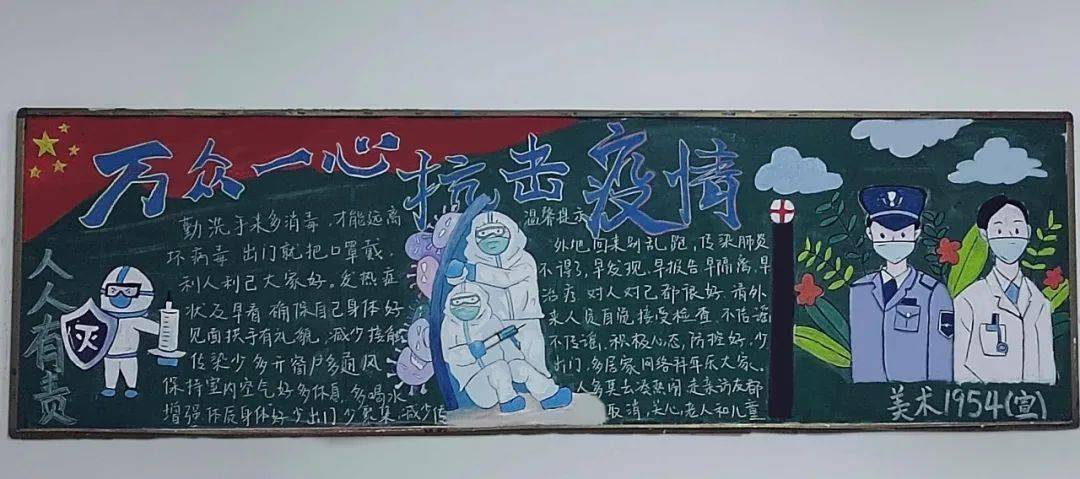 万众一心抗击疫情
人人有责
灭
勤洗手来多消毒，才能远离
坏病毒 出门就把口罩戴，
利人利己大家好。发热症
状及早看 确保自己身体好
见面拱手有礼貌，减少接触
传染少多开窗户多通风
保持室内空气好多休息，多喝水
增强体质身体好少出门少聚集，减少传
温馨提示
外地回来别乱跑，传染肺炎
不得了，早发现，早报告早隔离，早
治疗，对人对己都很好，请外
来人员自觉接受检查，不信谣
不传谣，积极心态，防班好，少
出门，多居家网络拜年乐大家。
人多莫去凑热闹走亲访友都
取消，关心老人和儿童
美术1954(宣)